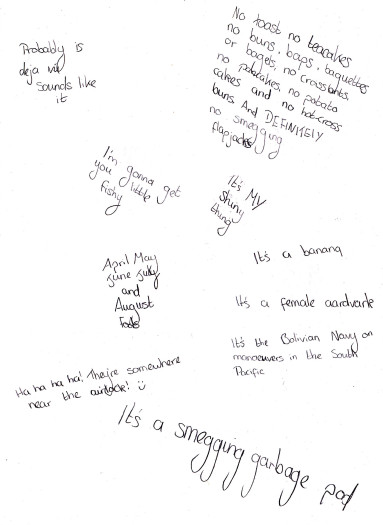 Probably is
deja vu
sounds like
it
No toast no teacakes
no buns, baps, baguettes
or bagels, no croissants,
no potatocakes, no potato
cakes and no hot-cross
buns. And DEFINITELY
no smegging
flapjacks
I'm gonna get
you little
fishy
It's MY
shiny
thing
April May
June July
and
August
Fools
It's a banana
It's a female aardvark
It's the Bolivian Navy on
manoeuvers in the South
Pacific
Ha ha ha ha! They're somewhere
near the airlock! :)
It's a smegging garbage pod